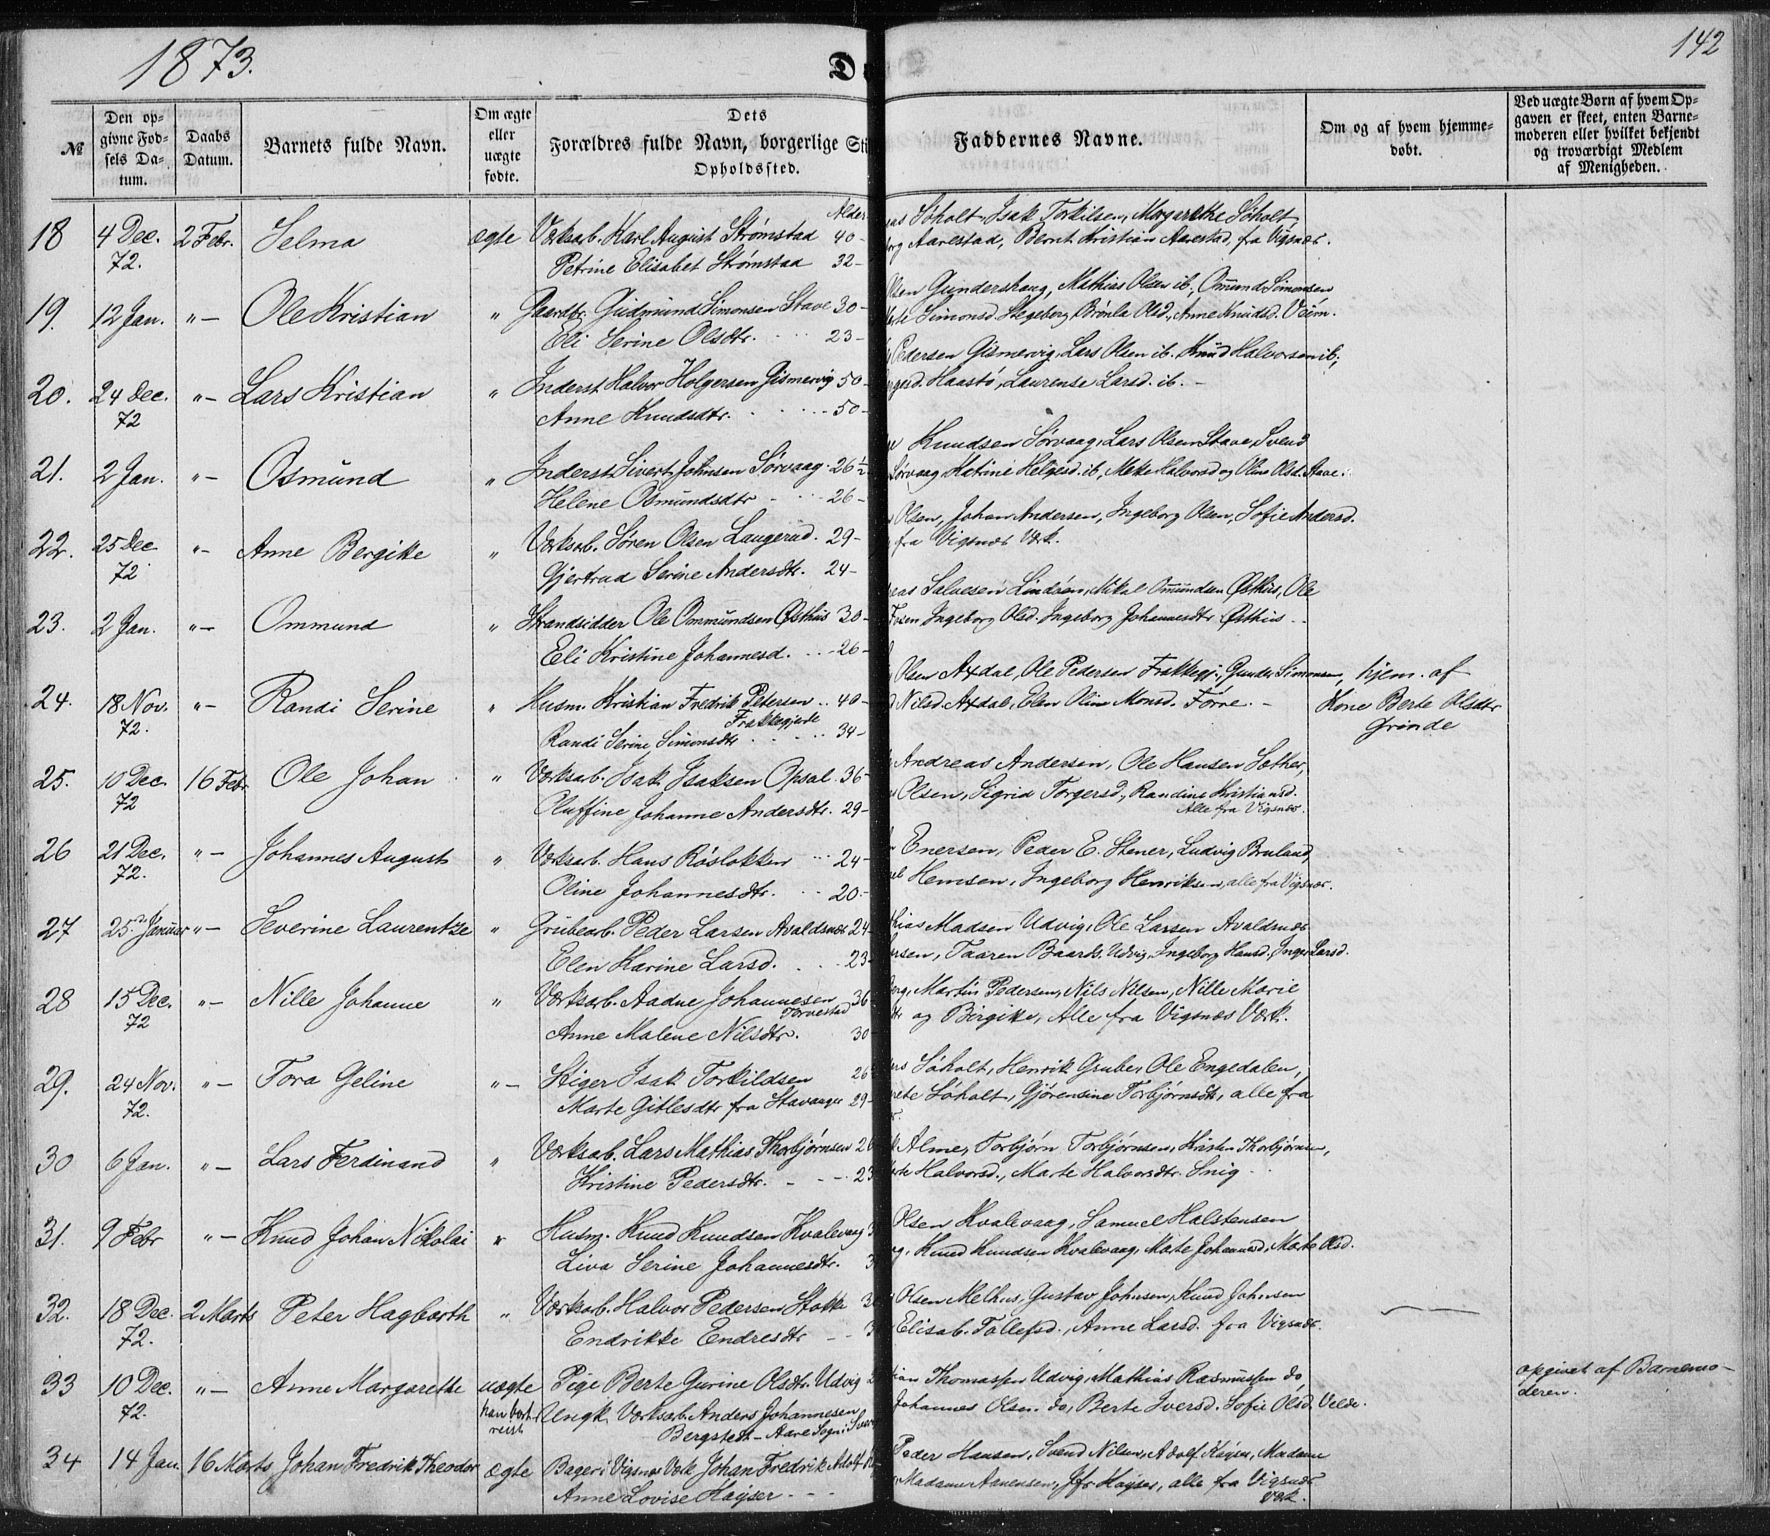 1873.
142
№
Den op-
givne Fød-
sels Da-
tum.
Daabs
Datum.
Barnets fulde Navn.
Om ægte
eller
uægte
fødte.
Dets
Forældres fulde Navn, borgerlige
Opholdssted.
Faddernes Navne.
Om og af hvem hjemme-
døbt.
Ved uægte Børn af hvem Op-
gaven er skeet, enten Barne-
moderen eller hvilket bekjendt
og troværdigt Medlem
af Menigheden.
Alder
18 4 Dec. 72. 2 Febr. Selma ægte Værksarb. Karl August Strømstad 40-
Petrine Elisabet Strømstad 32-
Søholt, Isak Torkilsen, Margarethe Søholt
Aarestad, Bernt Kristian Aarestad, fra Vigsnæs.
19. 12 Jan. "- Ole Kristian " Gaardbr. Gudmund Simonsen Stave 30-
Eli Serine Olsdtr. 23-
Gundershaug, Mathias Olsen ib., Omund Simonsen
Simonsd. Stegeberg, Brønla Olsd., Anne Knudsd.
20. 24 Dec. 72 "- Lars Kristian " Inderst Halvor Holgersen Gismervig 50-
Anne Knudsdtr. 50-
Pedersen Gismervig, Lars Olsen ib. Knud Halvorsen ib.,
Haastø, Laurense Larsd. ib. -
21. 2 Jan. "- Osmund " Inderst Sivert Johnsen Sørvaag 26½
Helene Osmundsdtr 26-
Knudsen Sørvaag, Lars Olsen Stave, Svend
Sørvaag, Katrine Helgesd. ib, Meke Halvorsd og Olene Olsd. Aave.
22. 25 Dec 72 "- Anne Bergike " Værksarb. Søren Olsen Laugerud. 29-
Gjertrud Serine Andersdtr. 24-
Olsen, Johan Andersen, Ingeborg Olsen, Sofie Andersd.
fra Vigsnæs Værk.
23. 2 Jan. "- Ommund " Strandsidder Ole Ommundsen Østhus 30-
Eli Kristine Johannesd. 26-
Salvesen Lindøen, Mikal Omundsen Østhus, Ole
Ingeborg Olsd. Ingeborg Johannesdtr Østhus
24. 18 Nov. 72. "- Randi Serine " Husm. Kristian Fredrik Petersen 40-
Frakkagjerde
Randi Serine Simonsdtr 34-
Olsen Axdal, Ole Pedersen Frakkegj., Gunder Simonsen,
Nilsd. Axdal, Elen Oline Monsd. Førre. -
hjem. af
Kone Berte Olsdtr
Grinde
25. 10 Dec. 72 16 Febr. Ole Johan " Værksarb. Isak Isaksen Opsal 36-
Oluffine Johanne Andersdtr. 29-
Andreas Andersen, Ole Hansen Sother,
Olsen, Sigrid Torgersd., Randine Kristiansd.
Alle fra Vigsnæs.
26 21 Dec. 72. "- Johannes August " Værksarb. Hans Røslokken 24-
Oline Johannesdtr. 20-
Enersen, Peder E. Stener, Ludvig Bruland,
Hemsen, Ingeborg Henriksen, alle fra Vigsnæs.
27 25 Januar "- Severine Laurentze " Grubearb. Peder Larsen Avaldsnæs 24
Elen Karine Larsd. 23-
Madsen Udvig, Ole Larsen Avaldsnæs
Taaren Baards. Udvig, Ingeborg Hansd, Inger Larsd.
28 15 Dec. 72 "- Nille Johanne " Værksarb. Aadne Johannesen 36
Torvestad
Anne Malene Nilsdtr. 30
Martin Pedersen, Nils Nilsen, Nille Marie
og Birgike, Alle fra Vigsnæs Værk.
29. 24 Nov. 72. "- Tora Geline "- Stiger Isak Torkildsen 26
Marte Gitlesdtr fra Stavanger 29-
Søholt, Henrik Gruber, Ole Engedalen,
Søholt, Gjørensine Torbjørnsdtr, alle fra
30 6 Jan. "- Lars Ferdinand " Værksarb. Lars Mathias Thorbjørnsen 26
Kristine Pedersdtr. - 23
Alme, Torbjørn Torbjørnsen, Kristen Thorbjørnsen,
Halvorsd., Marte Halvorsdtr. Snig
31. 9 Febr "- Knud Johan Nikolai " Husm. Knud Knudsen Kvalevaag
Liva Serine Johannesdtr.
Olsen Kvalevaag, Samuel Halstensen
Knud Knudsen Kvalevaag, Marte Johannesd, Marte Olsd.
32. 18 Dec. 72. 2 Marts Peter Hagbarth " Værksarb. Halvor Pedersen Stokke
Endrikke Endresdtr
Olsen Melhus, Gustav Johnsen, Knud Johnsen
Elisab. Tollefsd., Anne Larsd. fra Vigsnæs.
33 10 Dec. 72. "- Anne Margarethe uægte Pige Berte Gurine Olsdtr. Udvig
Ungk. Værksarb. Anders Johannesen
Bergstedt - Aare Sogn i
Thomassen Udvig, Mathias Rasmussen do,
Johannes Olsen do, Berte Iversd. Sofie Olsd. Velde.
opgivet af Barnemo-
deren.
34 14 Jan. 16 Marts Johan Fredrik Theodor ægte Bager i Vigsnæs Værk Johan Fredrik Adolf
Anne Lovise Kayser
Peder Hansen, Svend Nilsen, Adolf Kayser, Madame
Madame Aanensen, Jfr Kayser, alle fra Vigsnæs
Værk.